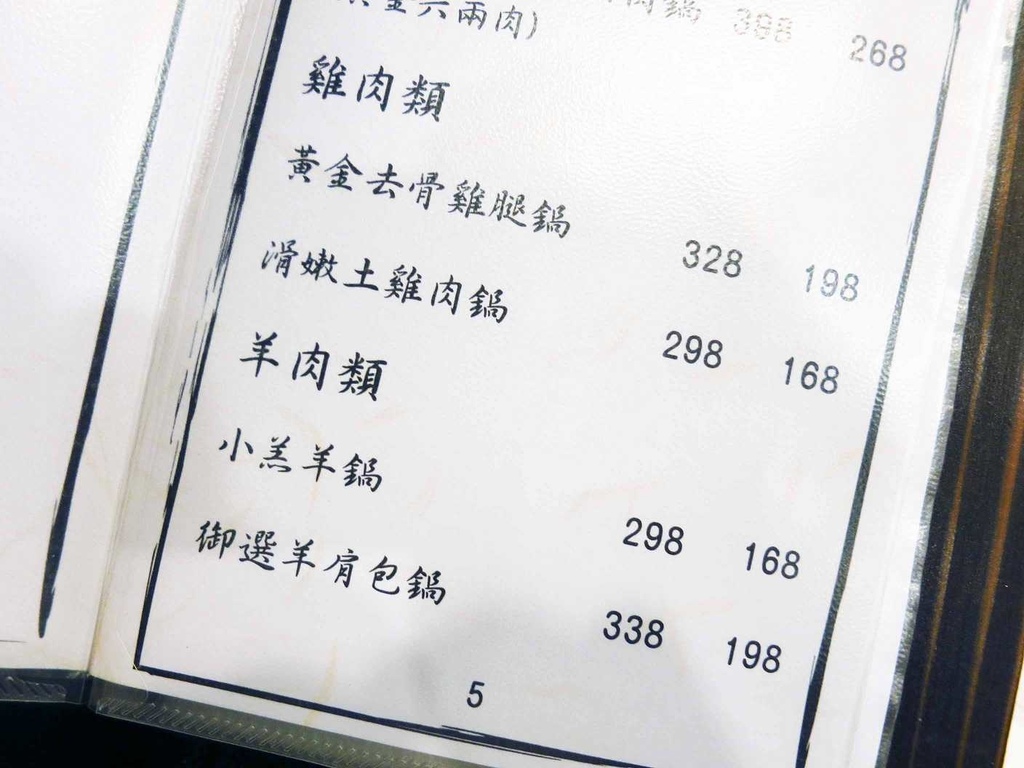 肉鍋 398 268
黃金六兩肉)
雞肉類
黃金去骨雞腿鍋 328 198
滑嫩土雞肉鍋 298 168
羊肉類
小羔羊鍋 298 168
御選羊肩包鍋 338 198
5